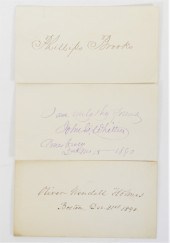 Phillips Brooks
I am truly thy friend
John G. Whittier
1890
Oliver Wendell Holmes
Boston Dec 1890